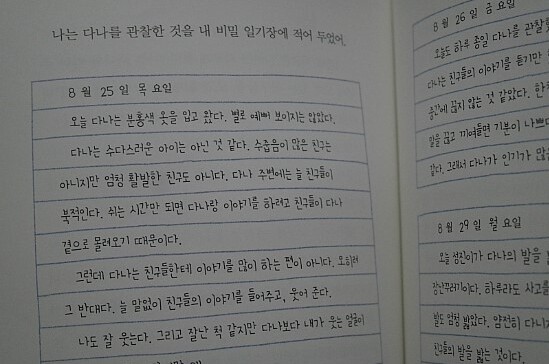 나는 다나를 관찰한 것을 내 비밀 일기장에 적어 두었어.
8 월 25 일 목 요일
오늘 다나는 분홍색 옷을 입고 왔다. 별로 예뻐 보이지는 않았다.
다나는 수다스러운 아이는 아닌 것 같다. 수줍음이 많은 친구는
아니지만 엄청 활발한 친구도 아니다. 다나 주변에는 늘 친구들이
북적인다. 쉬는 시간만 되면 다나랑 이야기를 하려고 친구들이 다나
곁으로 몰려오기 때문이다.
그런데 다나는 친구들한테 이야기를 많이 하는 편이 아니다. 오히려
그 반대다. 늘 말없이 친구들의 이야기를 들어주고, 웃어 준다.
나도 잘 웃는다. 그리고 잘난 척 같지만 다나보다 내가 웃는 얼굴이
8 월 26 일 금 요일
오늘도 하루 종일 다나를
다나는 친구들의 이야기를 듣기만
중간에 끊지 않는 것 같았다.
말을 끊고 끼어들면 기분이
같다. 그래서 다나가 인기가
8 월 29 일 월 요일
오늘 성진이가 다나의 발을
장난꾸러기이다. 하루라도 사고를
발도 엄청 밟았다. 얌전히
친구들의 발을 밟는 것이다.